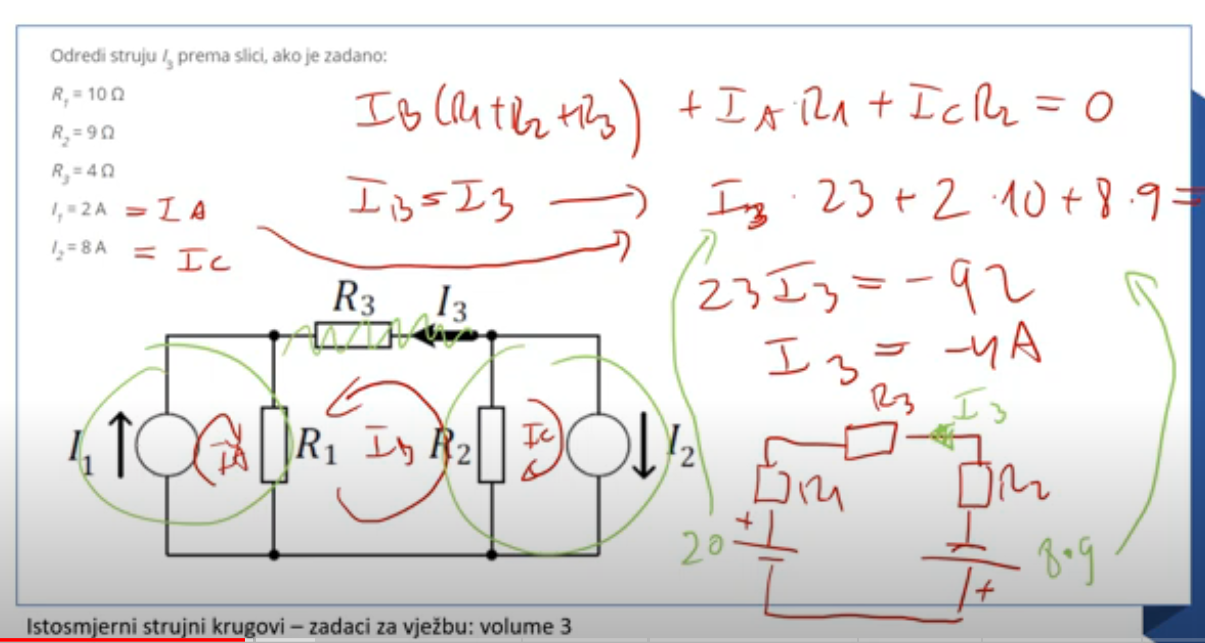 Odredi struju I₃ prema slici, ako je zadano:
R₁ = 10 Ω
R₂ = 9 Ω
R₃ = 4 Ω
I₁ = 2 A = IA
I₂ = 8 A = IC
IB (R1+R2+R3) + IA·R1 + IC R2 = 0
IB = I3 → I3 · 23 + 2 · 10 + 8 · 9 =
23 I3 = - 92
I3 = -4A
R₃ I₃
I₁ IA R₁ IB R₂ IC I₂
R3 I3
R1 R2
+
20 8·9
+
Istosmjerni strujni krugovi – zadaci za vježbu: volume 3